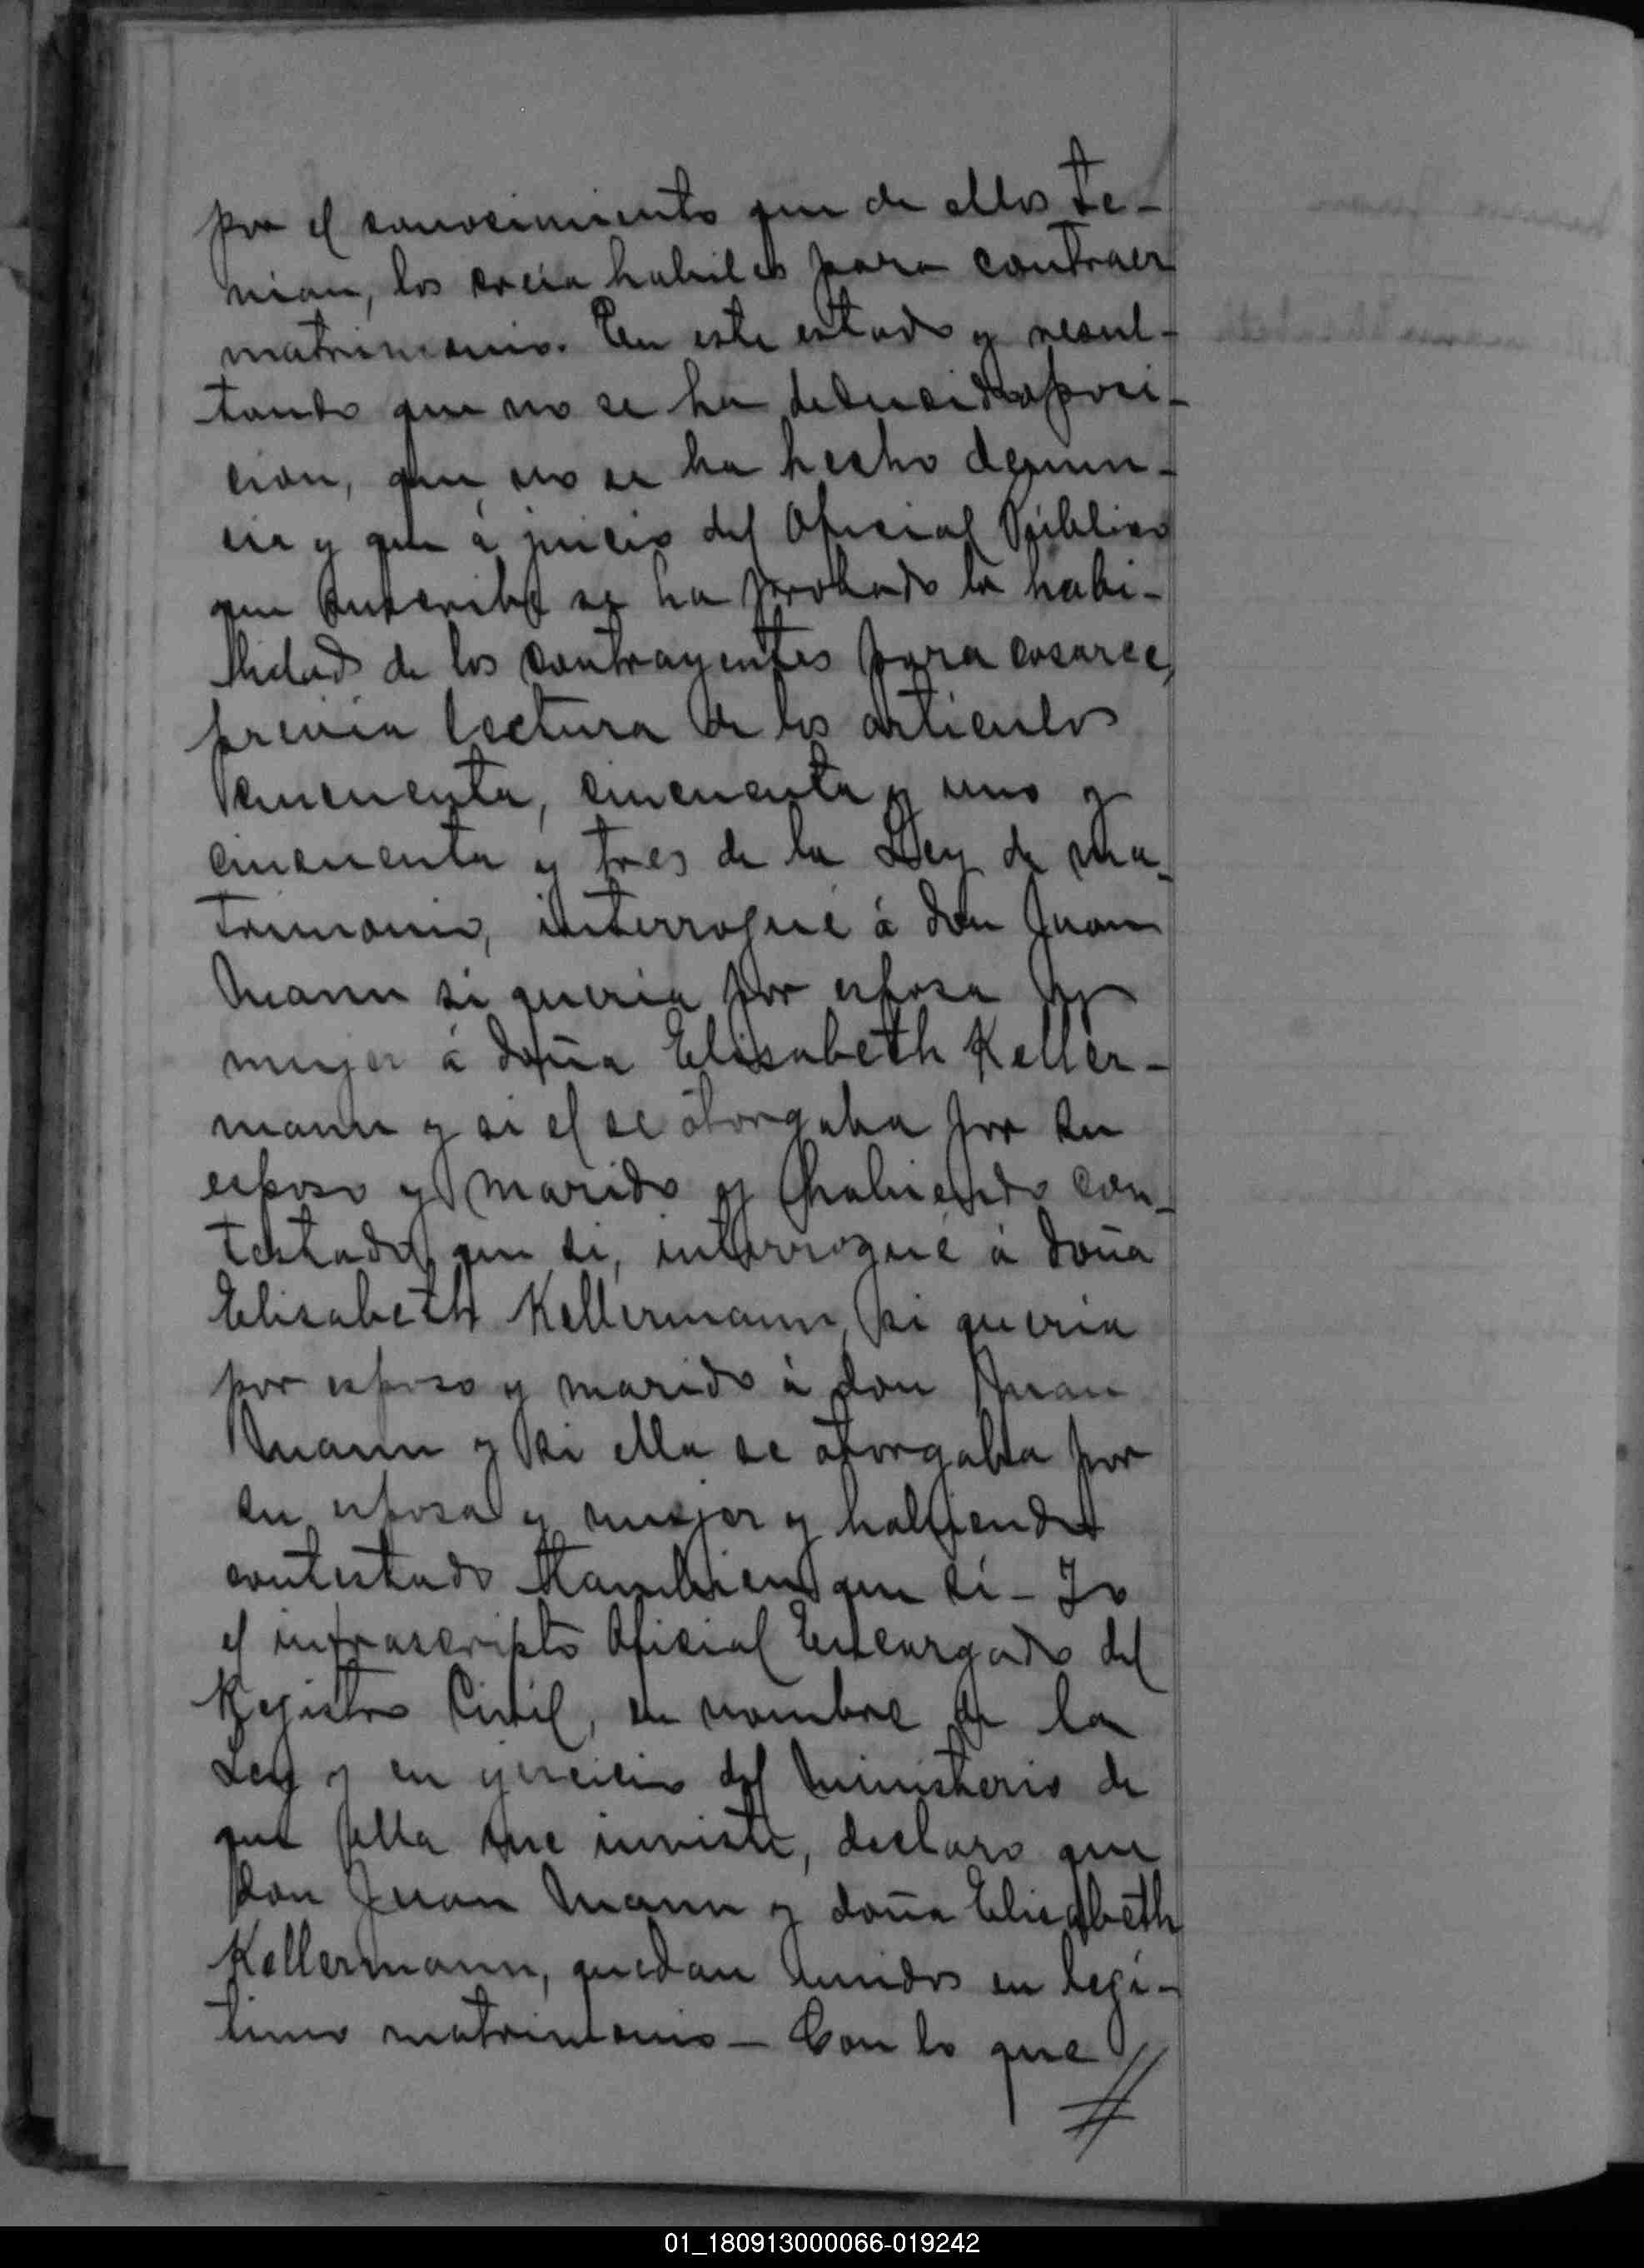 por el conocimiento que de ellos te-
nian, los creia habiles para contraer
matrimonio. En este estado y resul-
tando que no se ha deducido oposi-
cion, que no se ha hecho denun-
cia y que á juicio del Oficial Público
que suscribe se ha probado la habi-
lidad de los contrayentes para casarce,
prévia lectura de los artículos
cincuenta, cincuenta y uno y
cincuenta y tres de la Ley de ma-
trimonio, interrogué á don Juan
Mann si queria por esposa y
mujer á doña Elisabeth Keller-
mann y si el se otorgaba por su
esposo y marido y habiendo con-
testado que si, interrogué á doña
Elisabeth Kellermann, si queria
por esposo y marido á don Juan
Mann y si ella se otorgaba por
su esposa y mujer y habiendo
contestado tambien que si - Yo
el infrascripto Oficial Encargado del
Registro Civil, en nombre de la
Ley y en ejercicio del ministerio de
que ella me inviste, declaro que
don Juan Mann y doña Elisabeth
Kellermann, quedan unidos en legí-
timo matrimonio - Con lo que
01_180913000066-019242